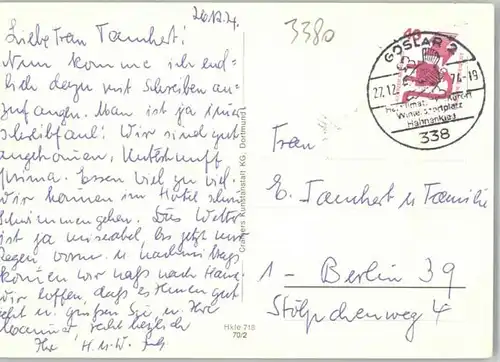 26.12.74.
3380
Liebe Frau Tamhert!
Nun komme ich end-
lich dazu mit Schreiben an-
zufangen. Man ist ja immer
schreibfaul! Wir sind gut
angekommen, Unterkunft
prima. Essen viel zu viel.
Wir können im Hotel
schwimmengehen. Das Wetter
ist ja miserabel, bis jetzt nur
Regen vorm. u. nachmittags
kommen wir naß nach Hause
Wir hoffen, daß es Ihnen gut
geht u. grüßen Sie u. Ihre
recht herzlich
Ihre H. u. W.
GOSLAR 2
27.12. 74-19
Heilklimat. Kurort
Wintersportplatz
Hahnenklee
338
Frau
E. Tamhert u Familie
1 - Berlin 39
Stölpchenweg 4
Cramers Kunstanstalt KG, Dortmund
Hkle 718
70/2